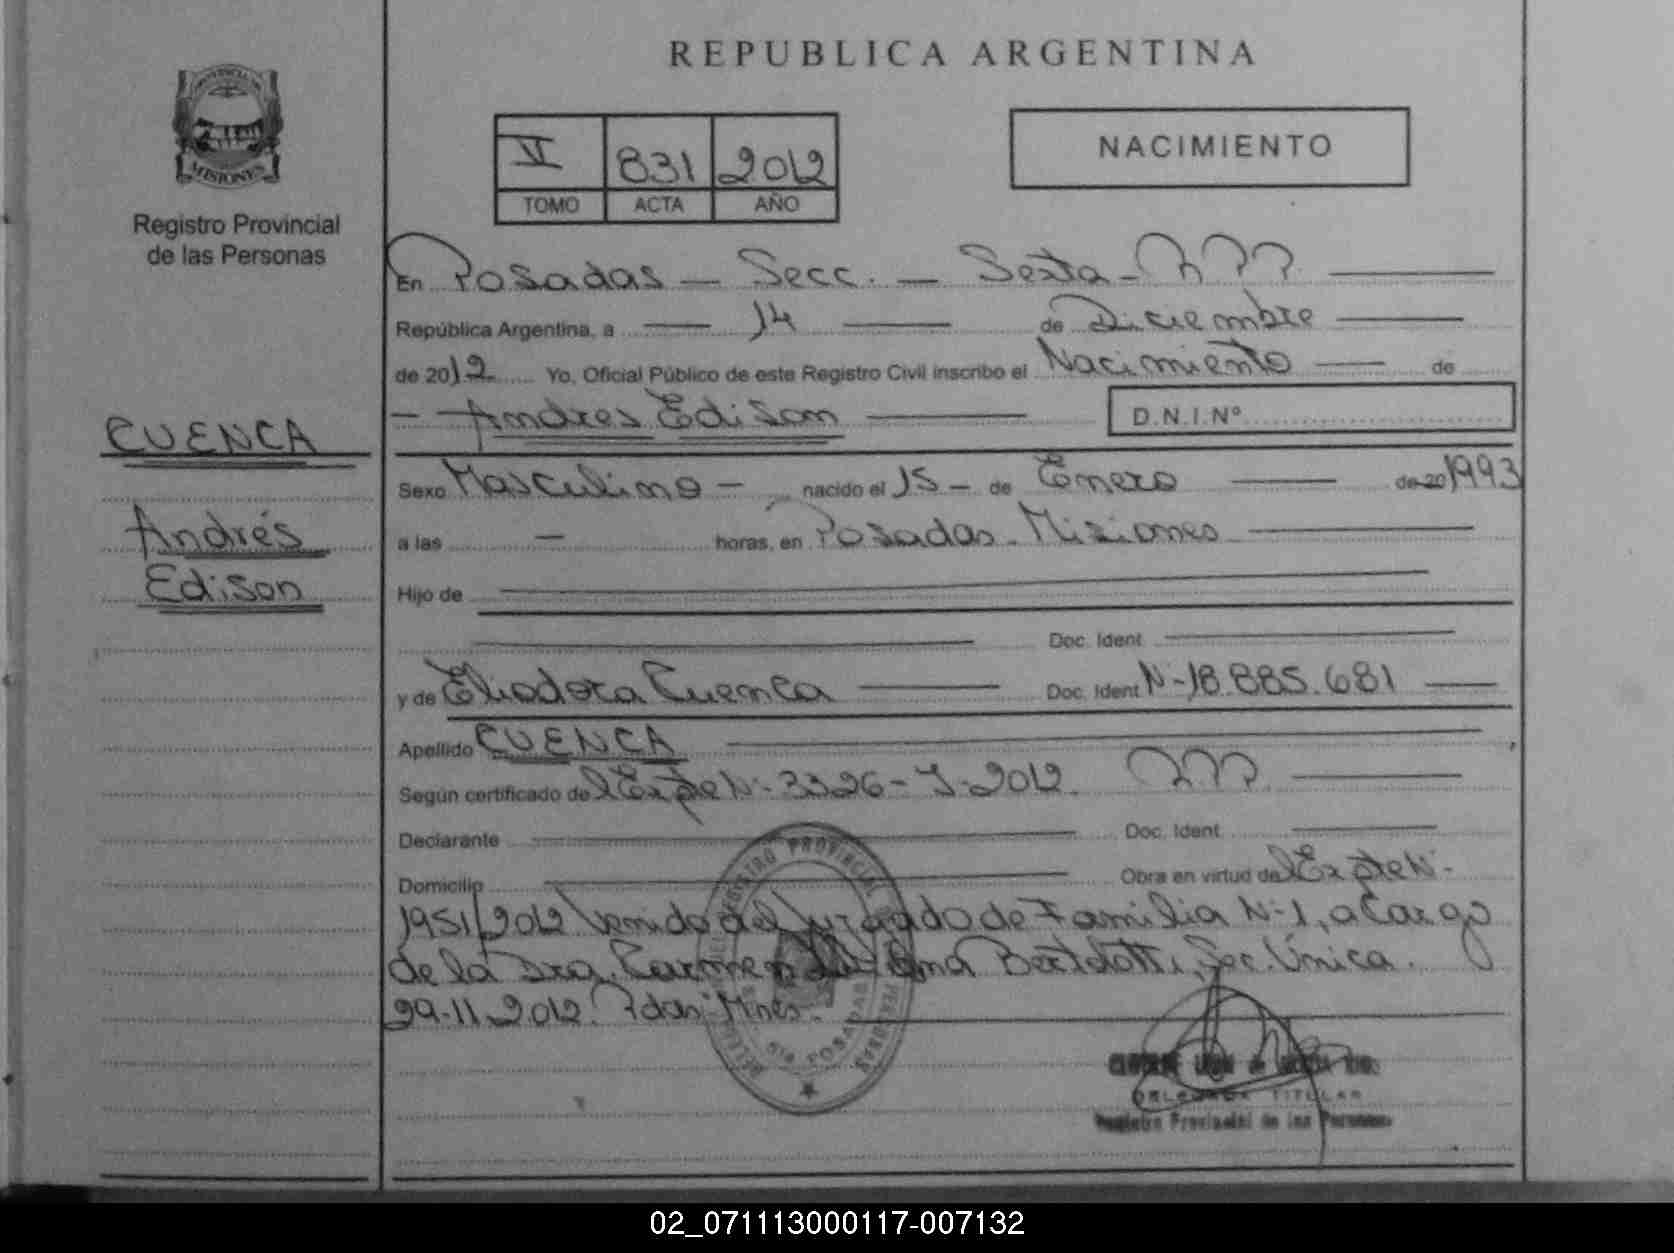 REPUBLICA ARGENTINA
PROVINCIA DE
MISIONES
Registro Provincial
de las Personas
VI 831 2012
TOMO ACTA AÑO
NACIMIENTO
En Posadas — Secc. — Sexta -
República Argentina, a — 14 — de Diciembre —
de 2012 Yo, Oficial Público de este Registro Civil inscribo el Nacimiento — de
— Andres Edison —
D.N.I.Nº
CUENCA
Andrés
Edison
Sexo Masculino - nacido el 15 - de Enero — de 20 1993
a las — horas, en Posadas - Misiones —
Hijo de —
— Doc. Ident. —
y de Eliodora Cuenca — Doc. Ident N-18.885.681 —
Apellido CUENCA —
Según certificado del Expte N- 3326-J-2012. —
Declarante — Doc. Ident. —
Domicilio — Obra en virtud del Expte N-
1951/2012 Venido del Juzgado de Familia N-1, a Cargo
de la Dra. Carmen Bertolotti, Sec. Única.
29-11-2012. Pdas-Mnes. —
REGISTRO PROVINCIAL DE LAS PERSONAS
6ta POSADAS
TITULAR
Registro Provincial de las Personas
02_071113000117-007132